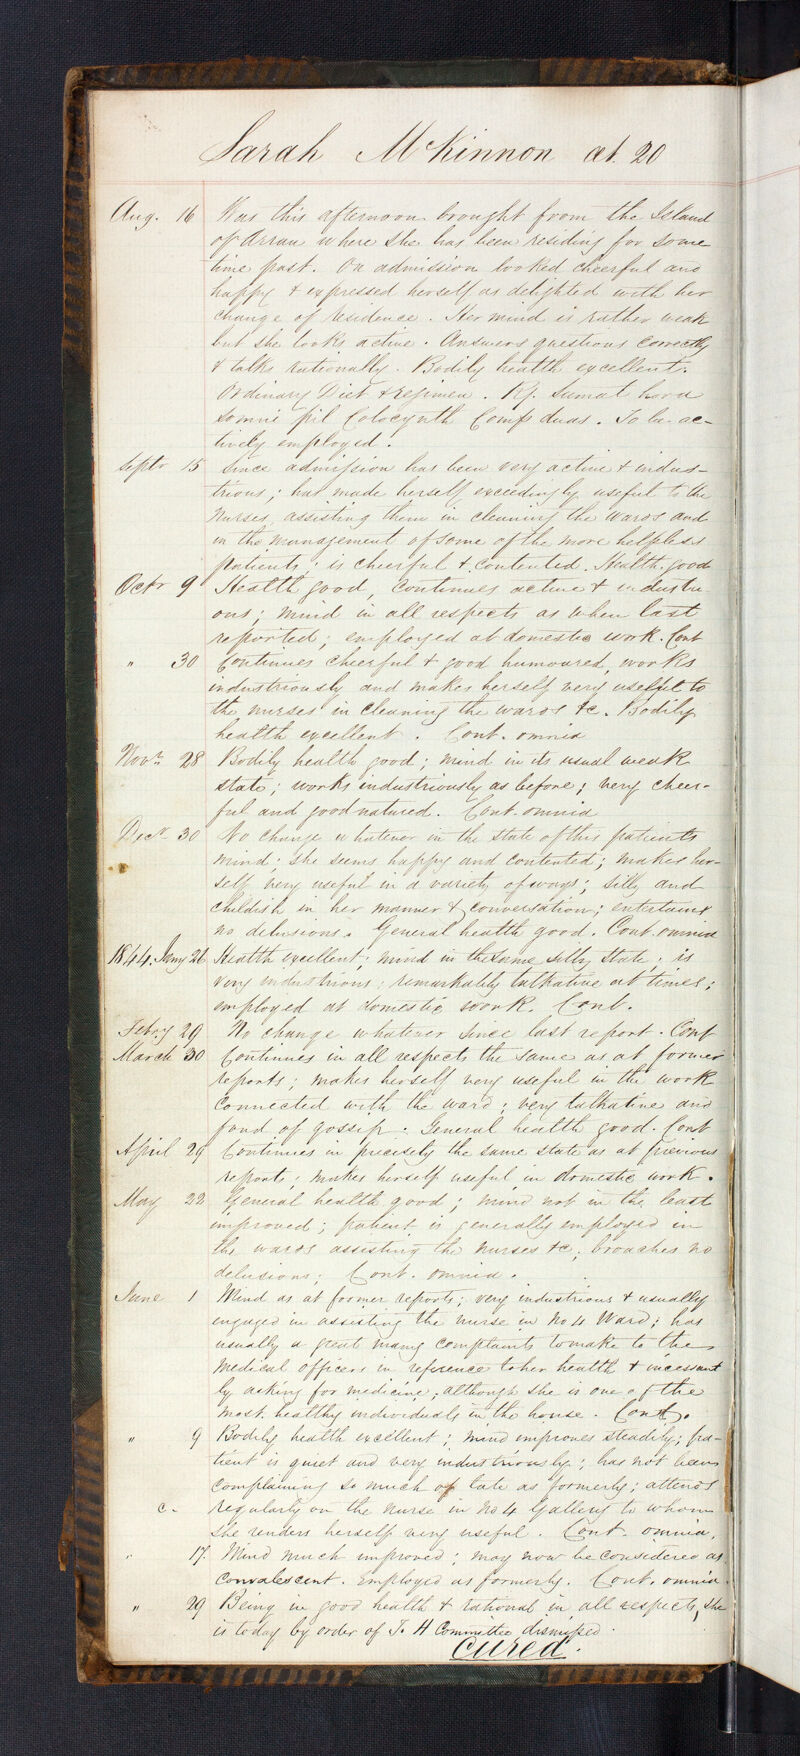 Sarah McKinnon at. 20
Aug. 16 Was this afternoon brought from the Island
of Arran where she has been residing for some
time past. On admission looked cheerful and
happy & expressed herself as delighted with her
change of residence. Her mind is rather weak
but she looks active. Answers questions correctly
& talks rationally. Bodily health excellent.
Ordinary Diet & regimen. Rj. Sumat hora
somni pil Colocynth Comp duas. To be ac-
tively employed.
Septr 15 Since admission has been very active & indus-
trious; has made herself exceedingly useful to the
nurses, assisting them in cleaning the wards and
in the management of some of the more helpless
patients; is cheerful & contented. Health good
Octr 9 Health good, continues active & industri-
ous; mind in all respects as when last
reported; employed at domestic work. Cont
" 30 Continues cheerful & good humoured, works
industriously and makes herself very useful to
the nurses in cleaning the wards &c. Bodily
health excellent. Cont. omnia
Novr. 28 Bodily health good; mind in its usual weak
state; works industriously as before; very cheer-
ful and good natured. Cont. omnia
Decr. 30 No change whatever in the state of this patients
mind; she seems happy and contented; makes her-
self very useful in a variety of ways; silly and
childish in her manner & conversation; entertains
no delusions. General health good. Cont. omnia
1844. Jany 26 Health excellent; mind in the same silly state; is
very industrious; remarkably talkative at times;
employed at domestic work. Cont.
Febry 29 No change whatever since last report. Cont
March 30 Continues in all respects the same as at former
reports; makes herself very useful in the work
connected with the ward; very talkative and
fond of gossip. General health good. Cont
April 29 Continues in precisely the same state as at previous
report; makes herself useful in domestic work.
May 22 General health good; mind not in the least
improved; patient is generally employed in
the wards assisting the nurses &c; broaches no
delusions; Cont. omnia.
June 1 Mind as at former reports; very industrious & usually
engaged in assisting the nurse in No 4 Ward; has
usually a great many complaints to make to the
medical officers in reference to her health & incessant
ly asking for medicine, although she is one of the
most healthy individuals in the house. Cont.
" 9 Bodily health excellent; mind improves steadily; pa-
tient is quiet and very industriously; has not been
complaining so much of late as formerly; attends
c. regularly on the nurse in No 4 Gallery to whom
she renders herself very useful. Cont. omnia,
" 17. Mind much improved; may now be considered as
convalescent. Employed as formerly. Cont. omnia.
" 29 Being in good health & rational in all respects, she
is today by order of T. H Committee dismissed
cured.